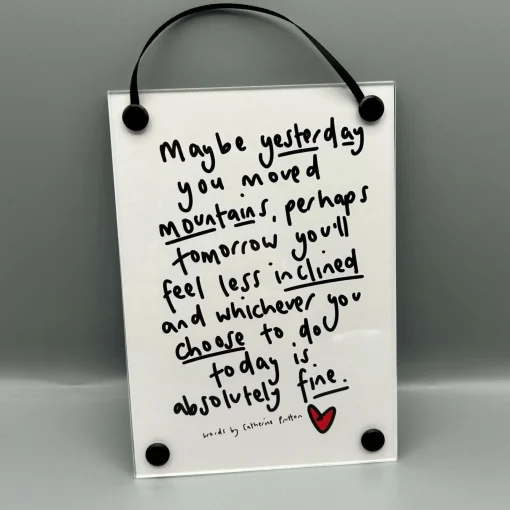 Maybe yesterday
you moved
mountains, perhaps
tomorrow you'll
feel less inclined
and whichever you
choose to do
today is
absolutely fine.
words by Catherine Prutton